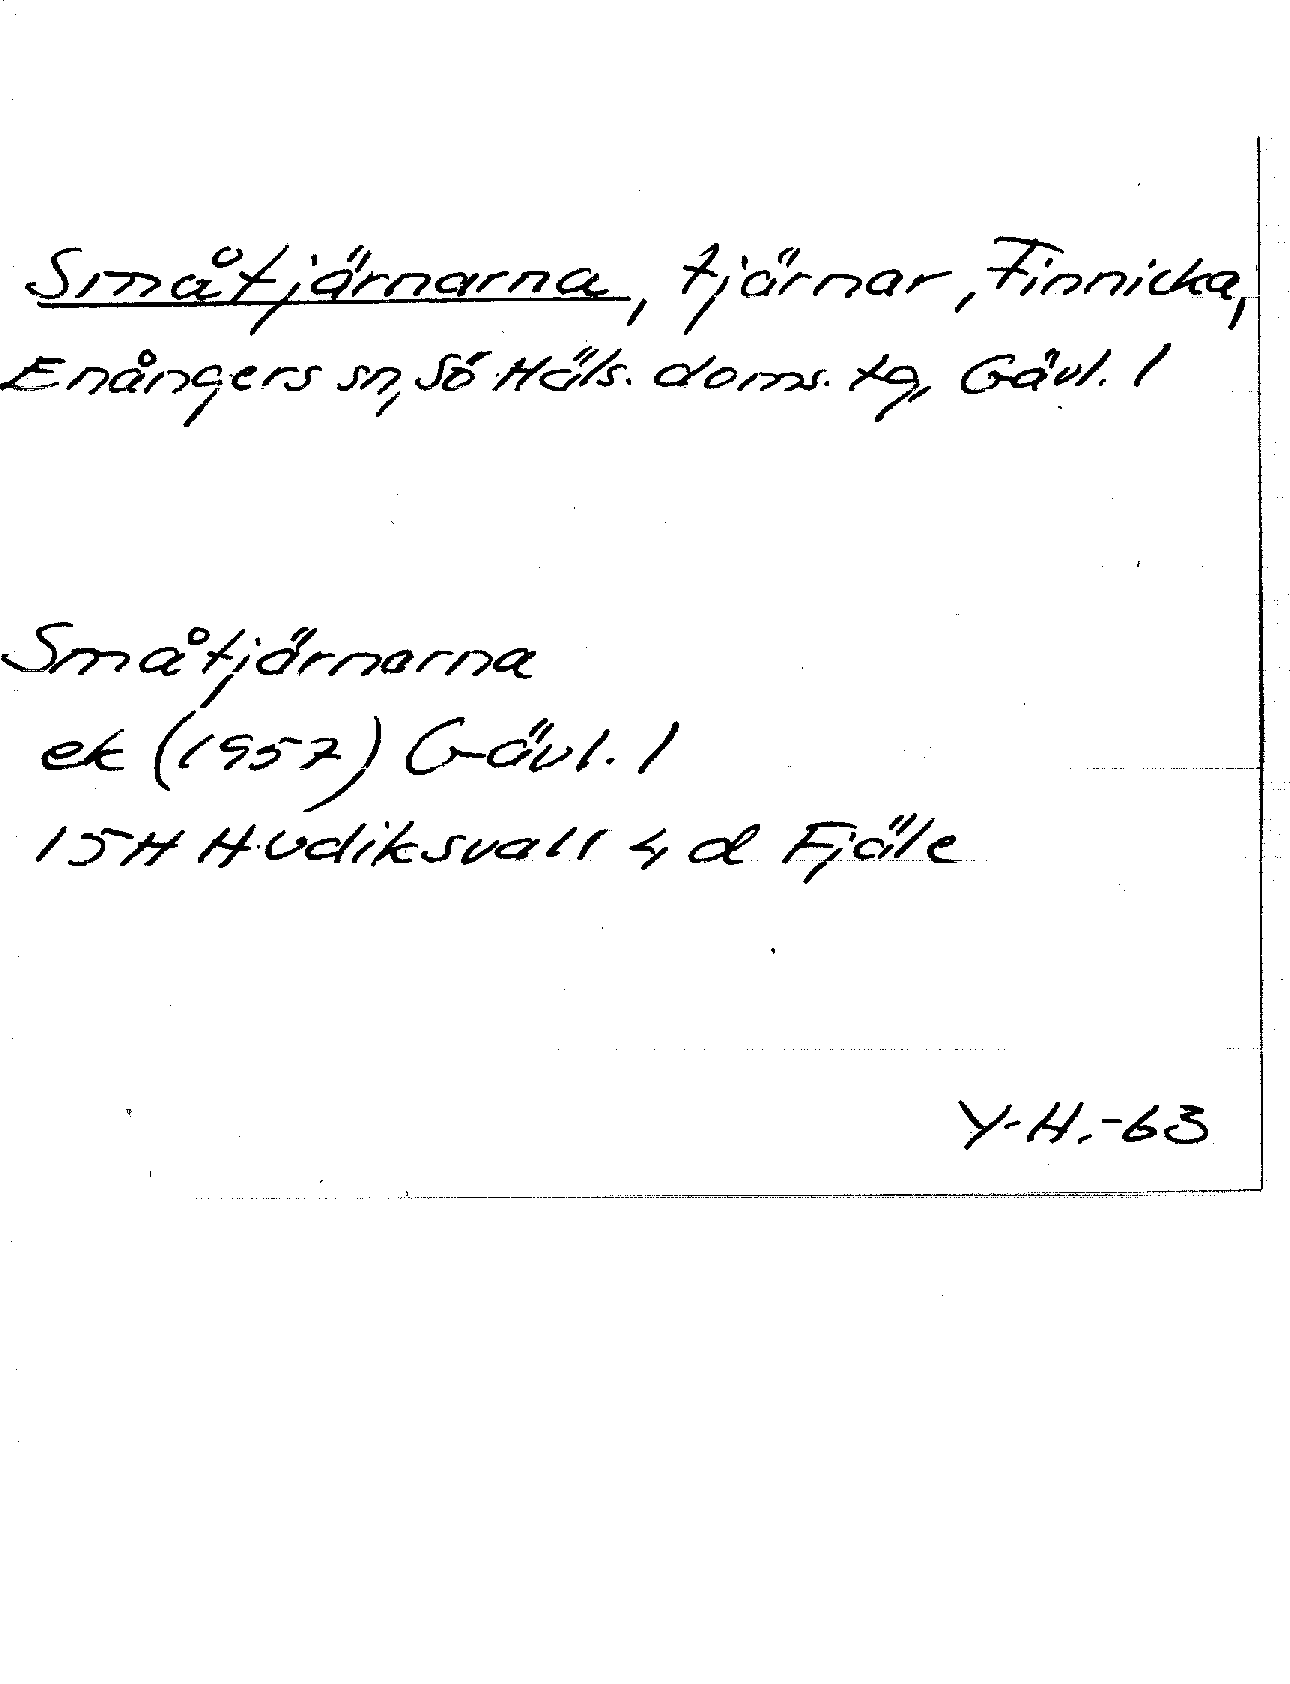 Småtjärnarna, tjärnar, Finnicka,
Enångers sn, Sö Häls. doms. tg, Gävl. l
Småtjärnarna
ek (1957) Gävl. l
15H Hudiksvall 4 d Fjäle
Y-H.-63